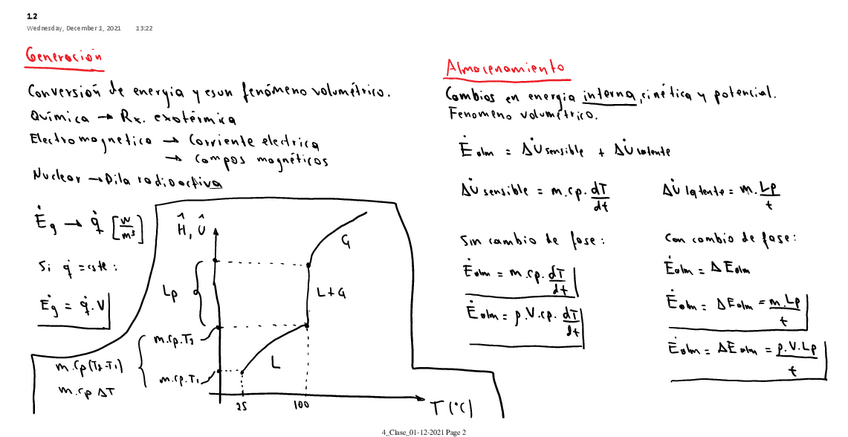 1.2
Wednesday, December 1, 2021 13:22
Generación
Conversión de energia y es un fenómeno volumétrico.
Química → Rx. exotérmica
Electromagnetico → Corriente electrica
→ Campos magnéticos
Nuclear → Pila radioactiva
Ėg → q̇ [W/m³]
Si q̇ = cste :
Ėg = q̇ . V
Ĥ, Û
G
Lp
L+G
m.cp.T2
m.cp(T2-T1)
m.cp ΔT
L
m.cp.T1
25 100 T (°C)
Almacenamiento
Cambios en energia interna, cinética y potencial.
Fenomeno volumétrico.
Ėalm = ΔU̇ sensible + ΔU̇ latente
ΔU̇ sensible = m.cp. dT/dt
ΔU̇ latente = m. Lp/t
Sin cambio de fase :
Ėalm = m.cp. dT/dt
Ėalm = ρ.V.cp. dT/dt
Con cambio de fase :
Ėalm = ΔEalm
Ėalm = ΔEalm = m.Lp/t
Ėalm = ΔEalm = ρ.V.Lp/t
4_Clase_01-12-2021 Page 2